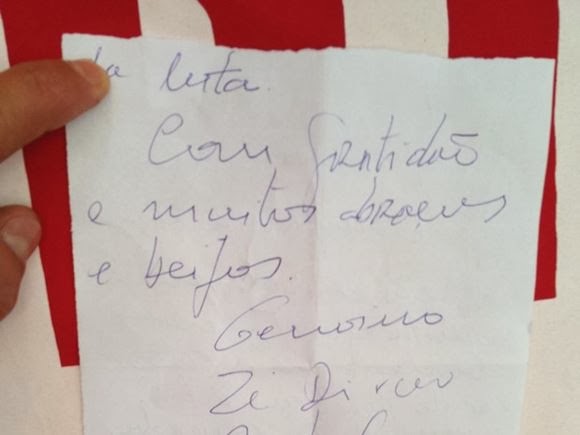 da luta.
Com gratidão
e muitos abraços
e beijos.
Genoino
Zé Dirceu